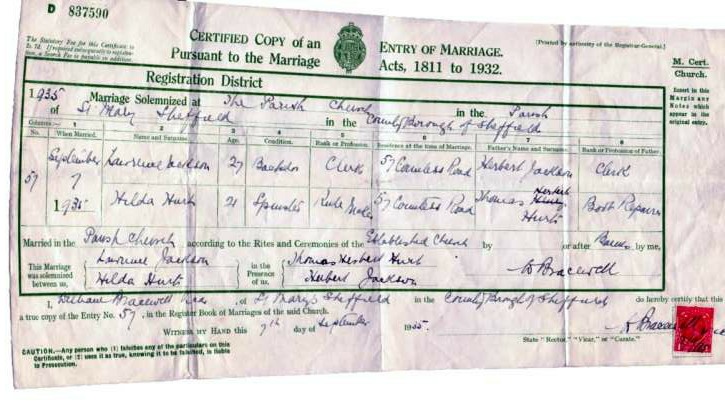 D 837590
CERTIFIED COPY of an ENTRY OF MARRIAGE.
Pursuant to the Marriage Acts, 1811 to 1932.
[Printed by authority of the Registrar-General.]
M. Cert.
Church.
Insert in this
Margin any
Notes which
appear in the
original entry.
Registration District
1935 Marriage Solemnized at The Parish Church in the Parish
of St Mary Sheffield in the County Borough of Sheffield
1 2 3 4 5 6 7 8
No. When Married. Name and Surname. Age. Condition. Rank or Profession. Residence at the time of Marriage. Father's Name and Surname. Rank or Profession of Father.
57
September
7
1935
Lawrence Jackson 27 Bachelor Clerk 57 Countess Road Herbert Jackson Clerk
Hilda Hurt 21 Spinster 57 Countess Road Thomas Herbert Hurt Boot Repairer
Married in the Parish Church according to the Rites and Ceremonies of the Established Church by or after Banns by me,
This Marriage was solemnized between us,
Lawrence Jackson
Hilda Hurt
in the Presence of us,
Thomas Herbert Hurt
Herbert Jackson
W Bracewell
I, William Bracewell, of St Mary's Sheffield in the County Borough of Sheffield do hereby certify that this
a true copy of the Entry No. 57, in the Register Book of Marriages of the said Church.
WITNESS MY HAND this 7th day of September 1935.
W Bracewell
State "Rector," "Vicar," or "Curate."
CAUTION.—Any person who (1) falsifies any of the particulars on this
Certificate, or (2) uses it as true, knowing it to be falsified, is liable
to Prosecution.